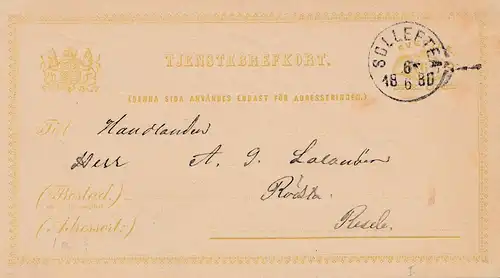 TJENSTABREFKORT.
SOLLEFTEÅ
6
18 6 80
(DENNA SIDA ANVÄNDES ENDAST FÖR ADRESSERINGEN.)
Till Handlanden
Herr A. G.
(Bostad:)
Resele.
(Adressort:)